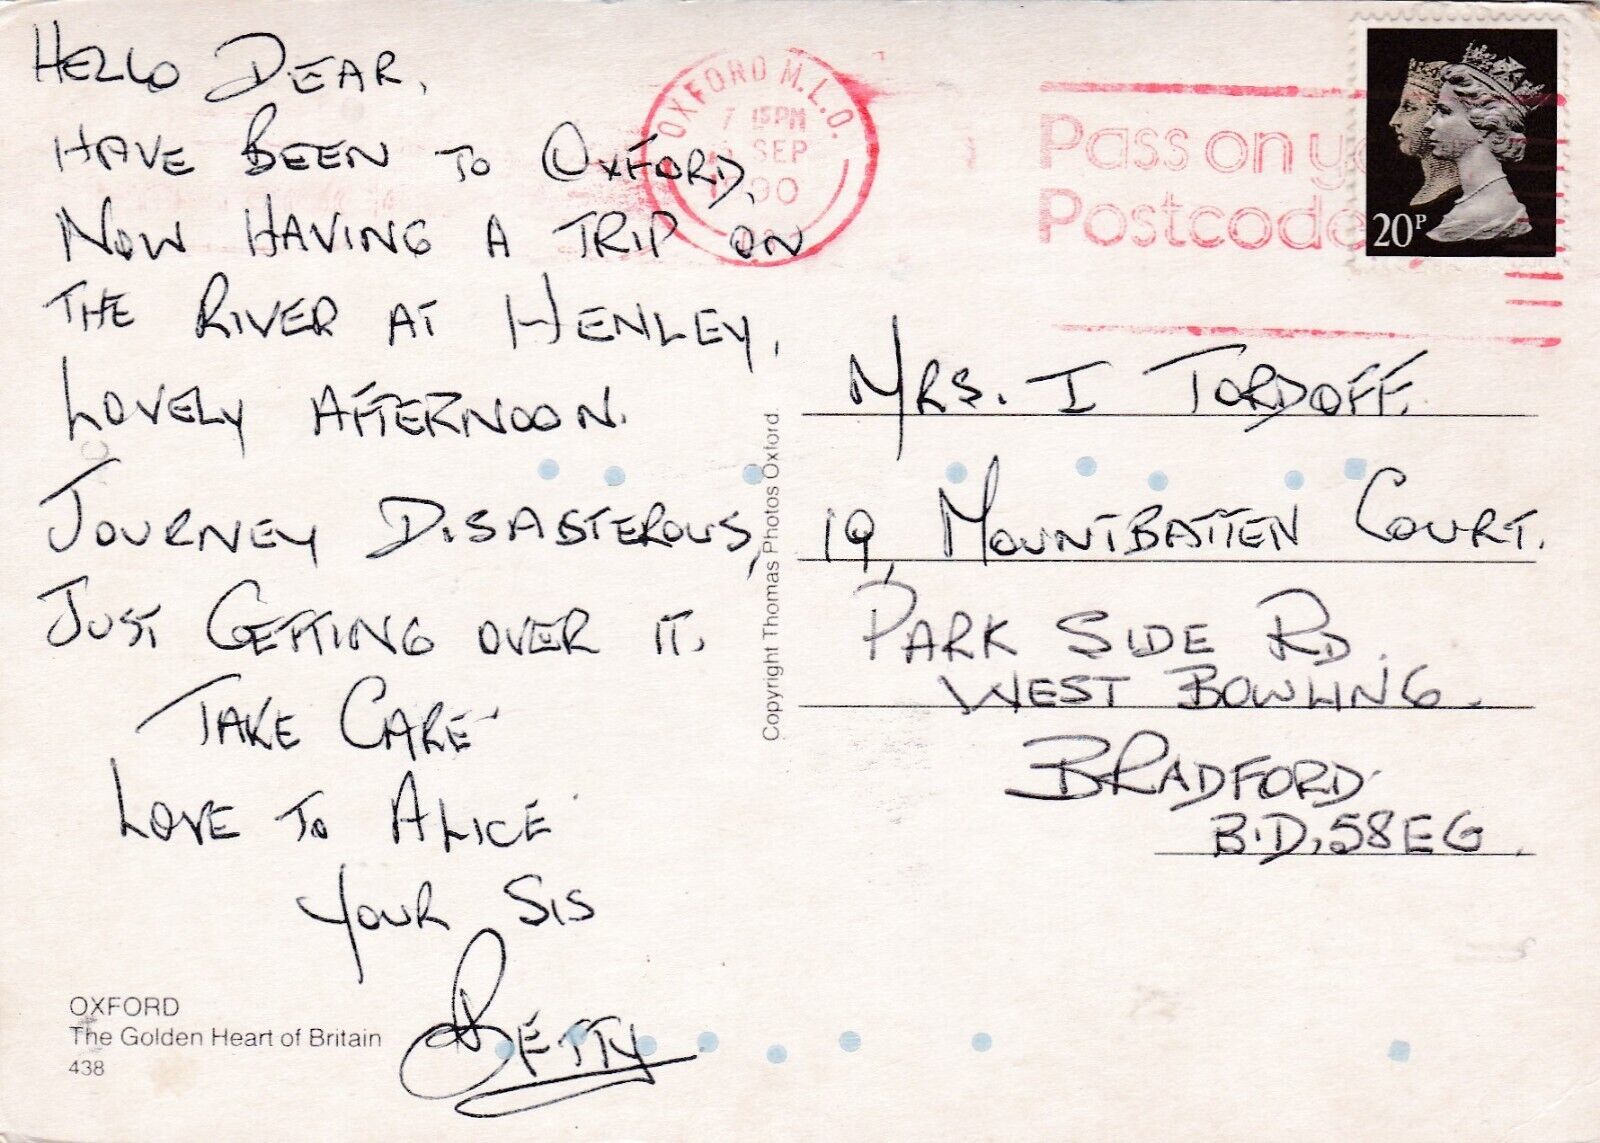 HELLO DEAR,
HAVE BEEN TO OXFORD,
NOW HAVING A TRIP ON
THE RIVER AT HENLEY,
LOVELY AFTERNOON.
JOURNEY DISASTEROUS,
JUST GETTING OVER IT.
TAKE CARE
LOVE TO ALICE
YOUR SIS
BETTY
OXFORD
The Golden Heart of Britain
438
Copyright Thomas Photos Oxford
OXFORD M.L.O.
7 15PM
SEP
Pass on
Postcode
20P
MRS. I TORDOFF.
19, MOUNTBATTEN COURT.
PARK SIDE RD.
WEST BOWLING.
BRADFORD
B.D,58EG.